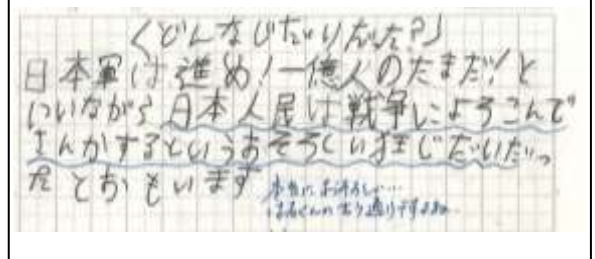 〈どんなじだいだった?〉
日本軍は進め!一億人のたまだ!と
いいながら日本人民は戦争によろこんで
さんかするというおそろしいじだいだっ
たとおもいます
本当におそろしい…
くんの言う通りですよね